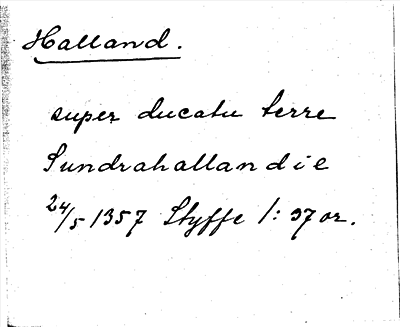 Halland.
super ducatu terre
Sundrahallandie
24/5 1357 Styffe 1: 37 or.